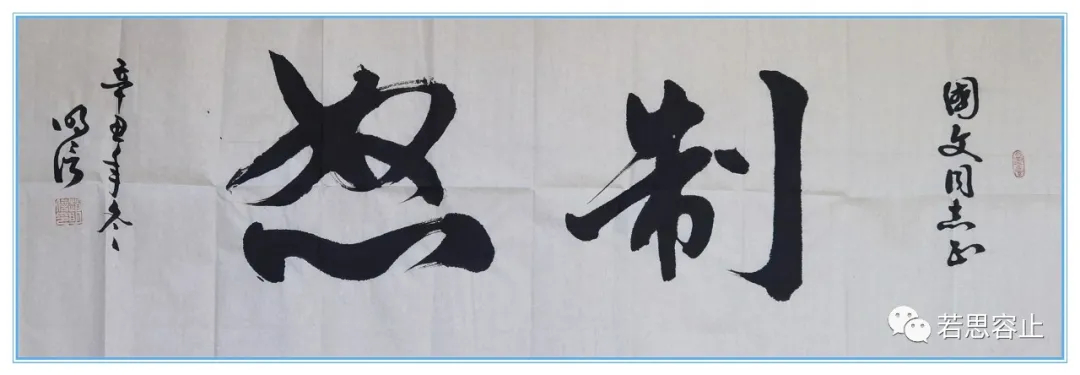 国文同志正
制怒
辛丑年冬
明信
若思容止